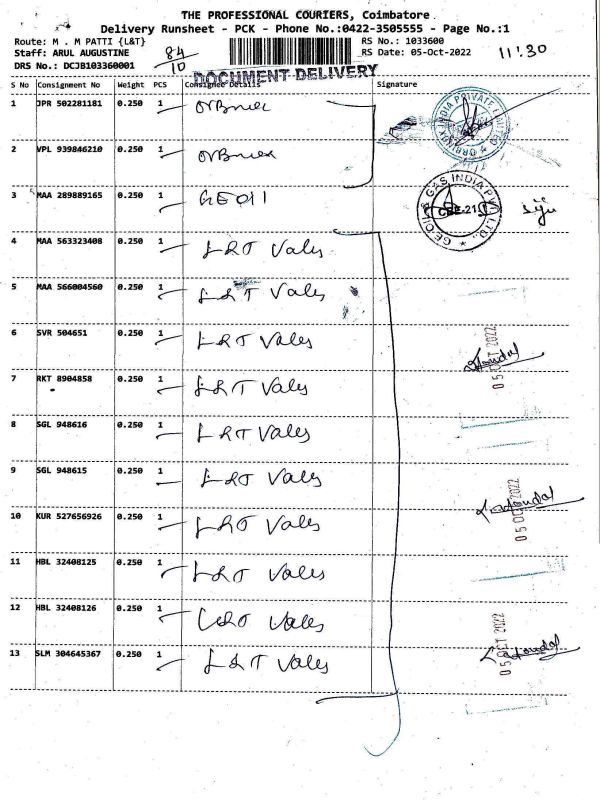 THE PROFESSIONAL COURIERS, Coimbatore
Delivery Runsheet - PCK - Phone No.:0422-3505555 - Page No.:1
Route: M . M PATTI {L&T} RS No.: 1033600
Staff: ARUL AUGUSTINE 84/10 RS Date: 05-Oct-2022 11:30
DRS No.: DCJB103360001
DOCUMENT DELIVERY
S No Consignment No Weight PCS Consignee Details Signature
1 JPR 502281181 0.250 1
2 VPL 939846210 0.250 1
3 MAA 289889165 0.250 1 GEOII
4 MAA 563323408 0.250 1 L&T Vales
5 MAA 566004560 0.250 1 L&T Vales
6 SVR 504651 0.250 1 L&T Vales
05 OCT 2022
7 RKT 8904858 0.250 1 L&T Vales
8 SGL 948616 0.250 1 L&T Vales
9 SGL 948615 0.250 1 L&T Vales
05 OCT 2022
10 KUR 527656926 0.250 1 L&T Vales
11 HBL 32408125 0.250 1 L&T Vales
12 HBL 32408126 0.250 1 L&T Vales
05 OCT 2022
13 SLM 304645367 0.250 1 L&T Vales